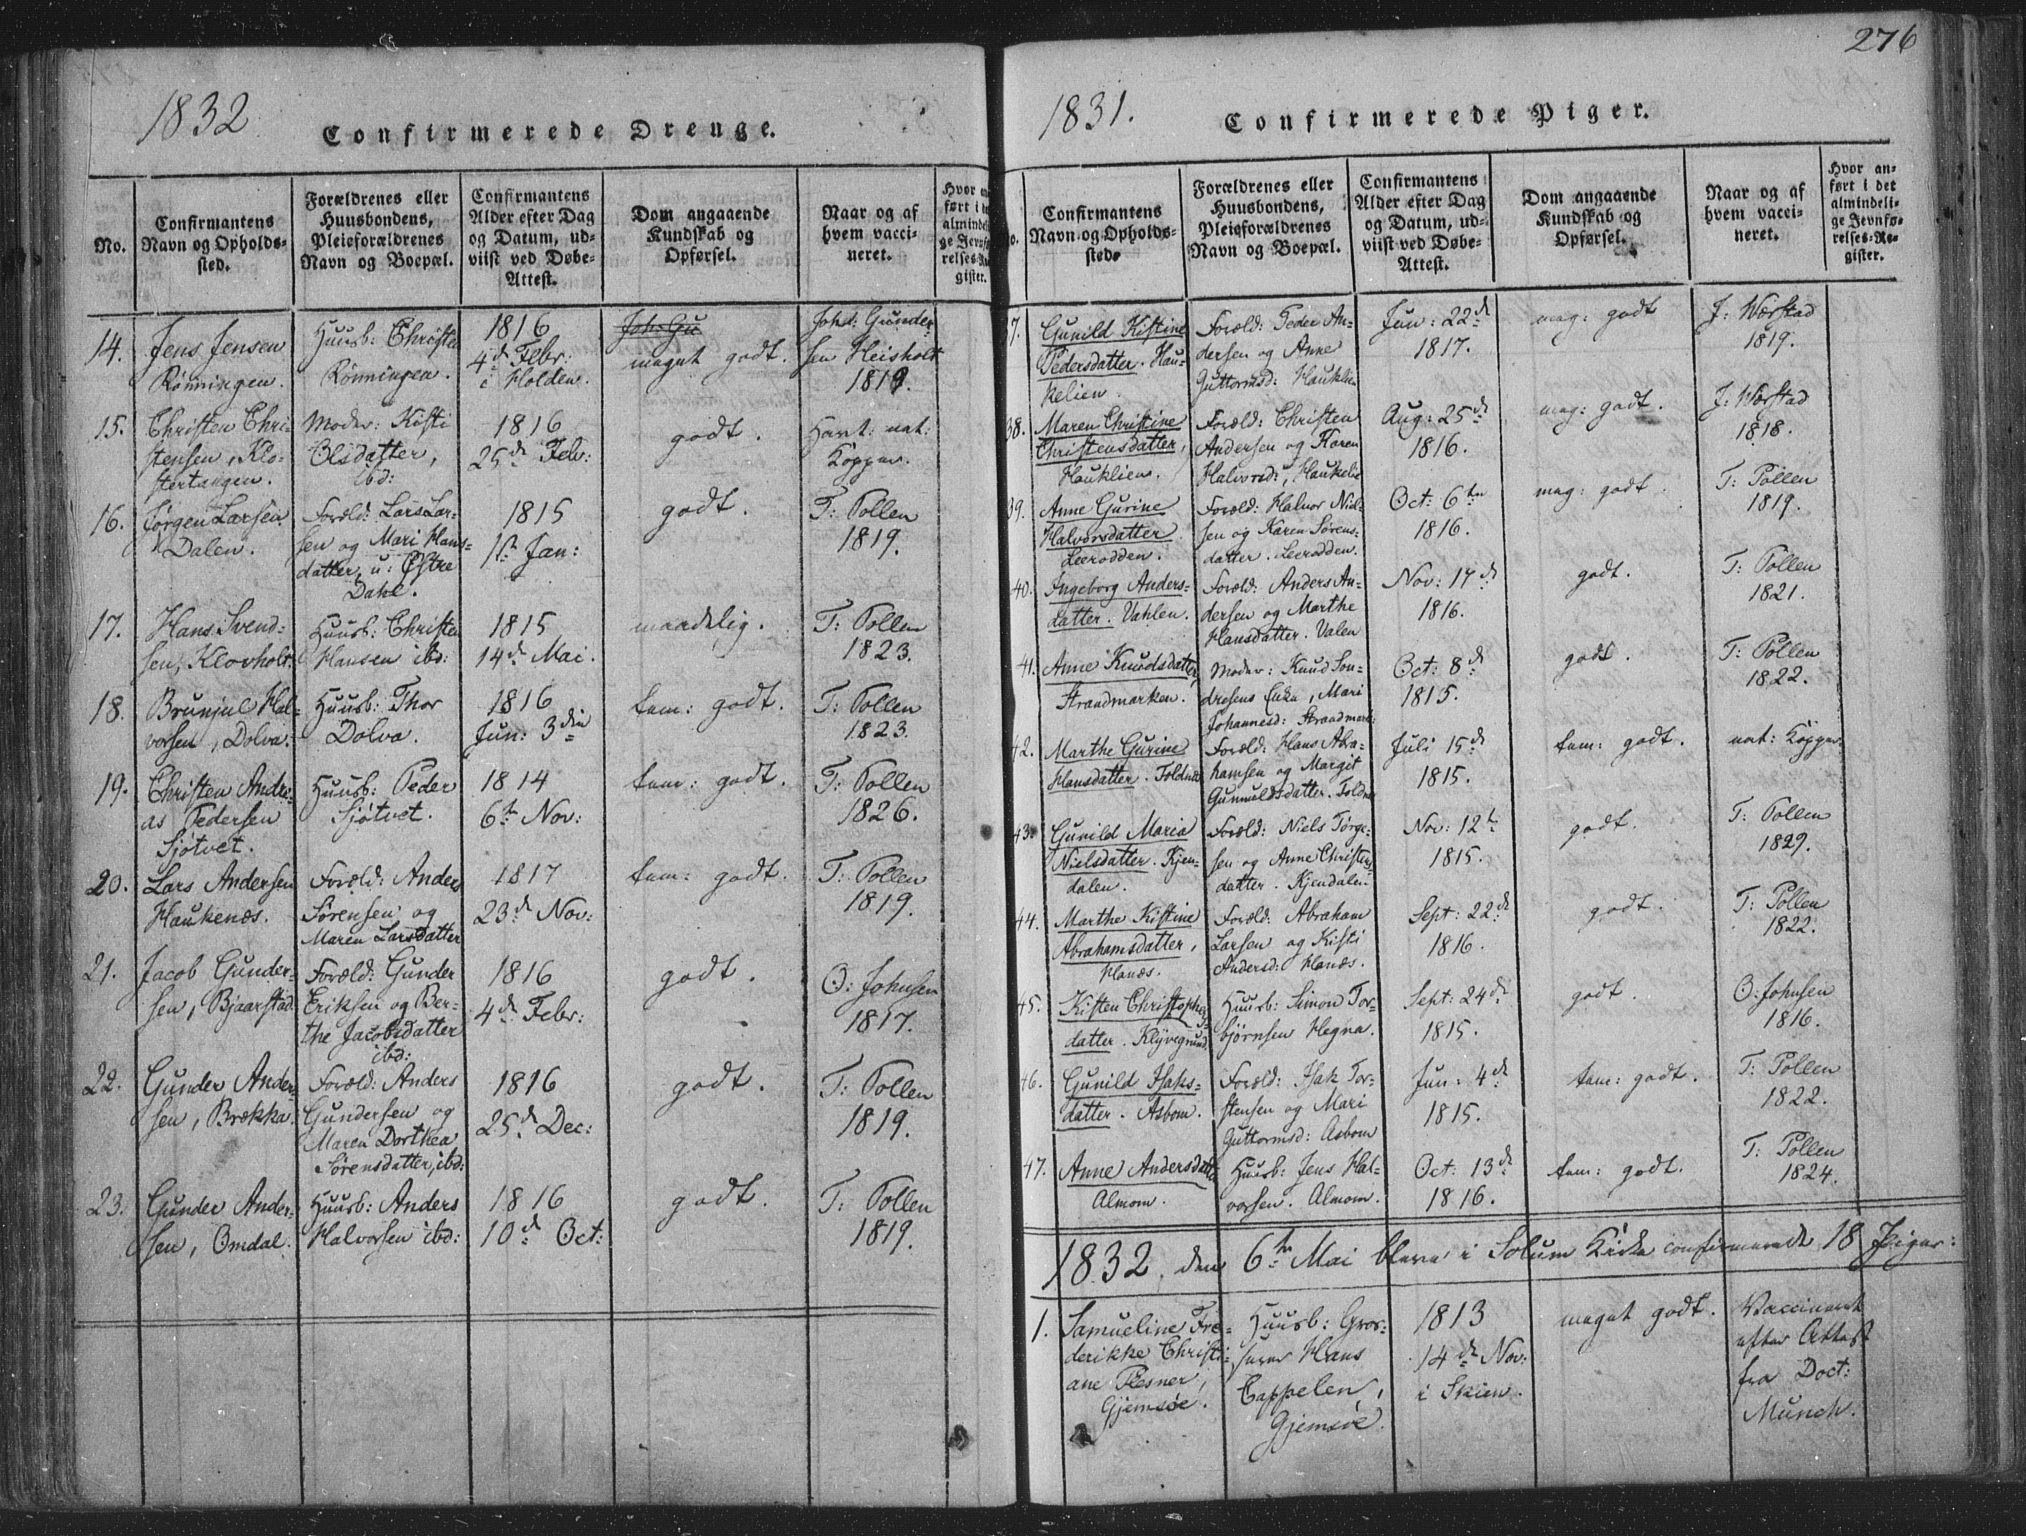 1832
Confirmerede Drenge.
No.
Confirmantens
Navn og Opholds-
sted.
Forældrenes eller
Huusbondens,
Pleieforældrenes
Navn og Boepæl.
Confirmantens
Alder efter Dag
og Datum, ud-
viist ved Døbe-
Attest.
Dom angaaende
Kundskab og
Opførsel.
Naar og af
hvem vacci-
neret.
14.
Jens Jensen
Rønningen.
Huusb: Christen
Rønningen.
1816
4de Febr:
i Holden.
Joh: Gu
meget godt.
Joh: Gunder-
sen Heisholt
1819
15.
Christen Chri-
stensen, Klo-
stertangen.
Moder: Kisti
Olsdatter,
ibd:
1816
25de Feb:
godt.
Havt nat:
Kopper.
16.
Jørgen Larsen
Dalen.
Foræld: Lars Lar-
sen og Mari Hans-
datter, u: Østre
Dahl.
1815
1ste Jan:
godt.
T: Pollen
1819.
17.
Hans Svend-
sen, Klovholt.
Huusb: Christen
Hansen ibd:
1815
14de Mai.
maadelig.
T: Pollen
1823.
18.
Brunjul Hal-
vorsen, Dolva.
Huusb: Thor
Dolva.
1816
Jun: 3die
tem: godt.
T: Pollen
1823.
19.
Christen Andre-
as Pedersen
Sjøtvet.
Huusb: Peder
Sjøtvet.
1814
6te Nov:
tem: godt.
T: Pollen
1826.
20.
Lars Andersen
Haukenæs.
Foræld: Anders
Sørensen og
Maren Larsdatter
1817
23de Nov:
tem: godt.
T: Pollen
1819.
21.
Jacob Gunder-
sen, Bjaarstad
Foræld: Gunder
Eriksen og Ber-
the Jacobsdatter
ibd:
1816
4de Febr:
godt.
O: Johnsen
1817.
22.
Gunder Ander-
sen, Brække.
Foræld: Anders
Gundersen og
Maren Dorthea
Sørensdatter, ibd:
1816
25de Dec:
godt.
T: Pollen
1819.
23.
Gunder Ander-
sen, Omdal.
Huusb: Anders
Halvorsen ibd:
1816
10de Oct:
godt.
T: Pollen
1819.
276
1831.
Confirmerede Piger.
Confirmantens
Navn og Opholds-
sted.
Forældrenes eller
Huusbondens,
Pleieforældrenes
Navn og Boepæl.
Confirmantens
Alder efter Dag
og Datum, ud-
viist ved Døbe-
Attest.
Dom angaaende
Kundskab og
Opførsel.
Naar og af
hvem vacci-
neret.
Hvor an-
ført i det
almindeli-
ge Jevnfø-
relses-Re-
gister.
37.
Gunild Kistine
Pedersdatter. Hau-
kelien.
Foræld: Peder An-
dersen og Anne
Guttormsd: Hauklien
Jun: 22de
1817.
meg: godt
J: Værstad
1819.
38.
Maren Christine
Christensdatter,
Hauklien.
Foræld: Christen
Andersen og Karen
Halvorsd:, Haukelie
Aug: 25de
1816.
meg: godt.
J: Værstad
1818.
39.
Anne Gurine
Halvorsdatter.
Leerodden.
Foræld: Halvor Niel-
sen og Karen Sørens-
datter. Leerodden.
Oct: 6te
1816.
meg: godt.
T: Pollen
1819.
40.
Ingeborg Anders-
datter. Vahlen.
Foræld: Anders An-
dersen og Marthe
Hansdatter. Valen
Nov: 17de
1816.
godt.
T: Pollen
1821.
41.
Anne Knudsdatter,
Strandmarken.
Moder: Knud Son-
dresens Enke, Mari
Johannesd: Strandmark:
Oct: 8de
1815.
godt.
T: Pollen
1822.
42.
Marthe Gurine
Hansdatter. Foldnæs
Foræld: Hans Abra-
hamsen og Margit
Gunnuldsdatter. Foldnæs
Juli 15de
1815.
tem: godt.
nat: Kopper.
43.
Gunild Maria
Nielsdatter. Kjen-
dalen.
Foræld: Niels Jørgen-
sen og Anne Christens-
datter. Kjendalen
Nov: 12te
1815.
godt.
T: Pollen
1829.
44.
Marthe Kistine
Abrahamsdatter,
Hanæs.
Foræld: Abraham
Larsen og Kisti
Andersd: Hanæs.
Sept: 22de
1816.
godt.
T: Pollen
1822.
45.
Kisten Christophers-
datter. Klyvegrund.
Huusb: Simon Tor-
bjørnsen Hegna.
Sept: 24de
1815.
godt.
O: Johnsen
1816.
46.
Gunild Isaks-
datter. Asbom.
Foræld: Isak Tor-
stensen og Mari
Guttormsd: Asbom
Jun: 4de
1815.
tem: godt.
T: Pollen
1822.
47.
Anne Andersdatter
Almom.
Huusb: Jens Hal-
vorsen. Almom.
Oct: 13de
1816.
tem: godt.
T: Pollen
1824.
1832. den 6te Mai bleve i Solum Kirke confirmerede 18 Piger:
1.
Samueline Fre-
derikke Christi-
ane Plesner,
Gjemsøe.
Huusb: Gros-
serer Hans
Cappelen,
Gjemsøe.
1813
14de Nov:
i Skien.
meget godt.
Vaccineret
efter Attest
fra Doct:
Munch.